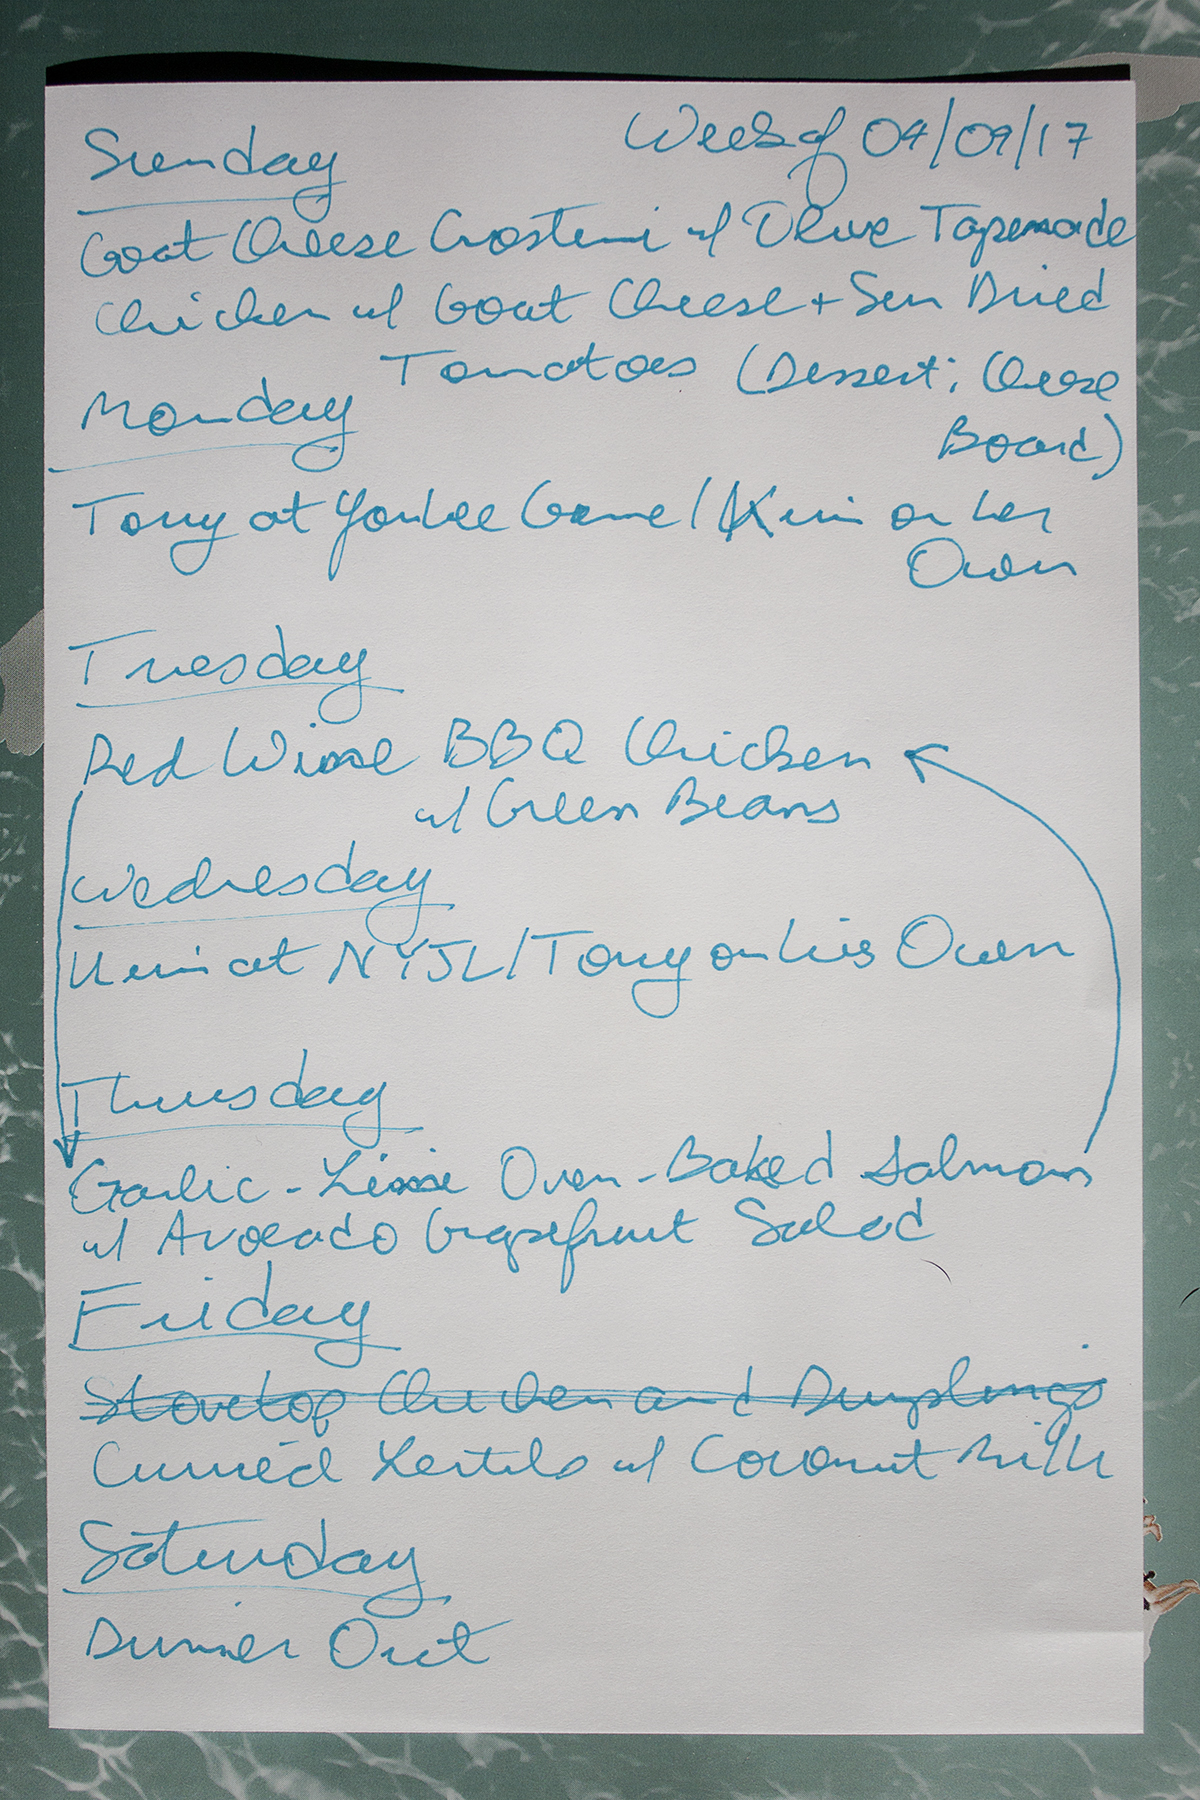 Week of 04/09/17
Sunday
Goat Cheese Crostini w/ Olive Tapenade
Chicken w/ Goat Cheese + Sun Dried
Tomatoes (Dessert: Cheese
Board)
Monday
Tony at Yankee Game / Kim on her
Own
Tuesday
Red Wine BBQ Chicken
w/ Green Beans
Wednesday
Kim at NYJL / Tony on his Own
Thursday
Garlic-Lime Oven-Baked Salmon
w/ Avocado Grapefruit Salad
Friday
Stovetop Chicken and Dumplings
Curried Lentils w/ Coconut Milk
Saturday
Dinner Out